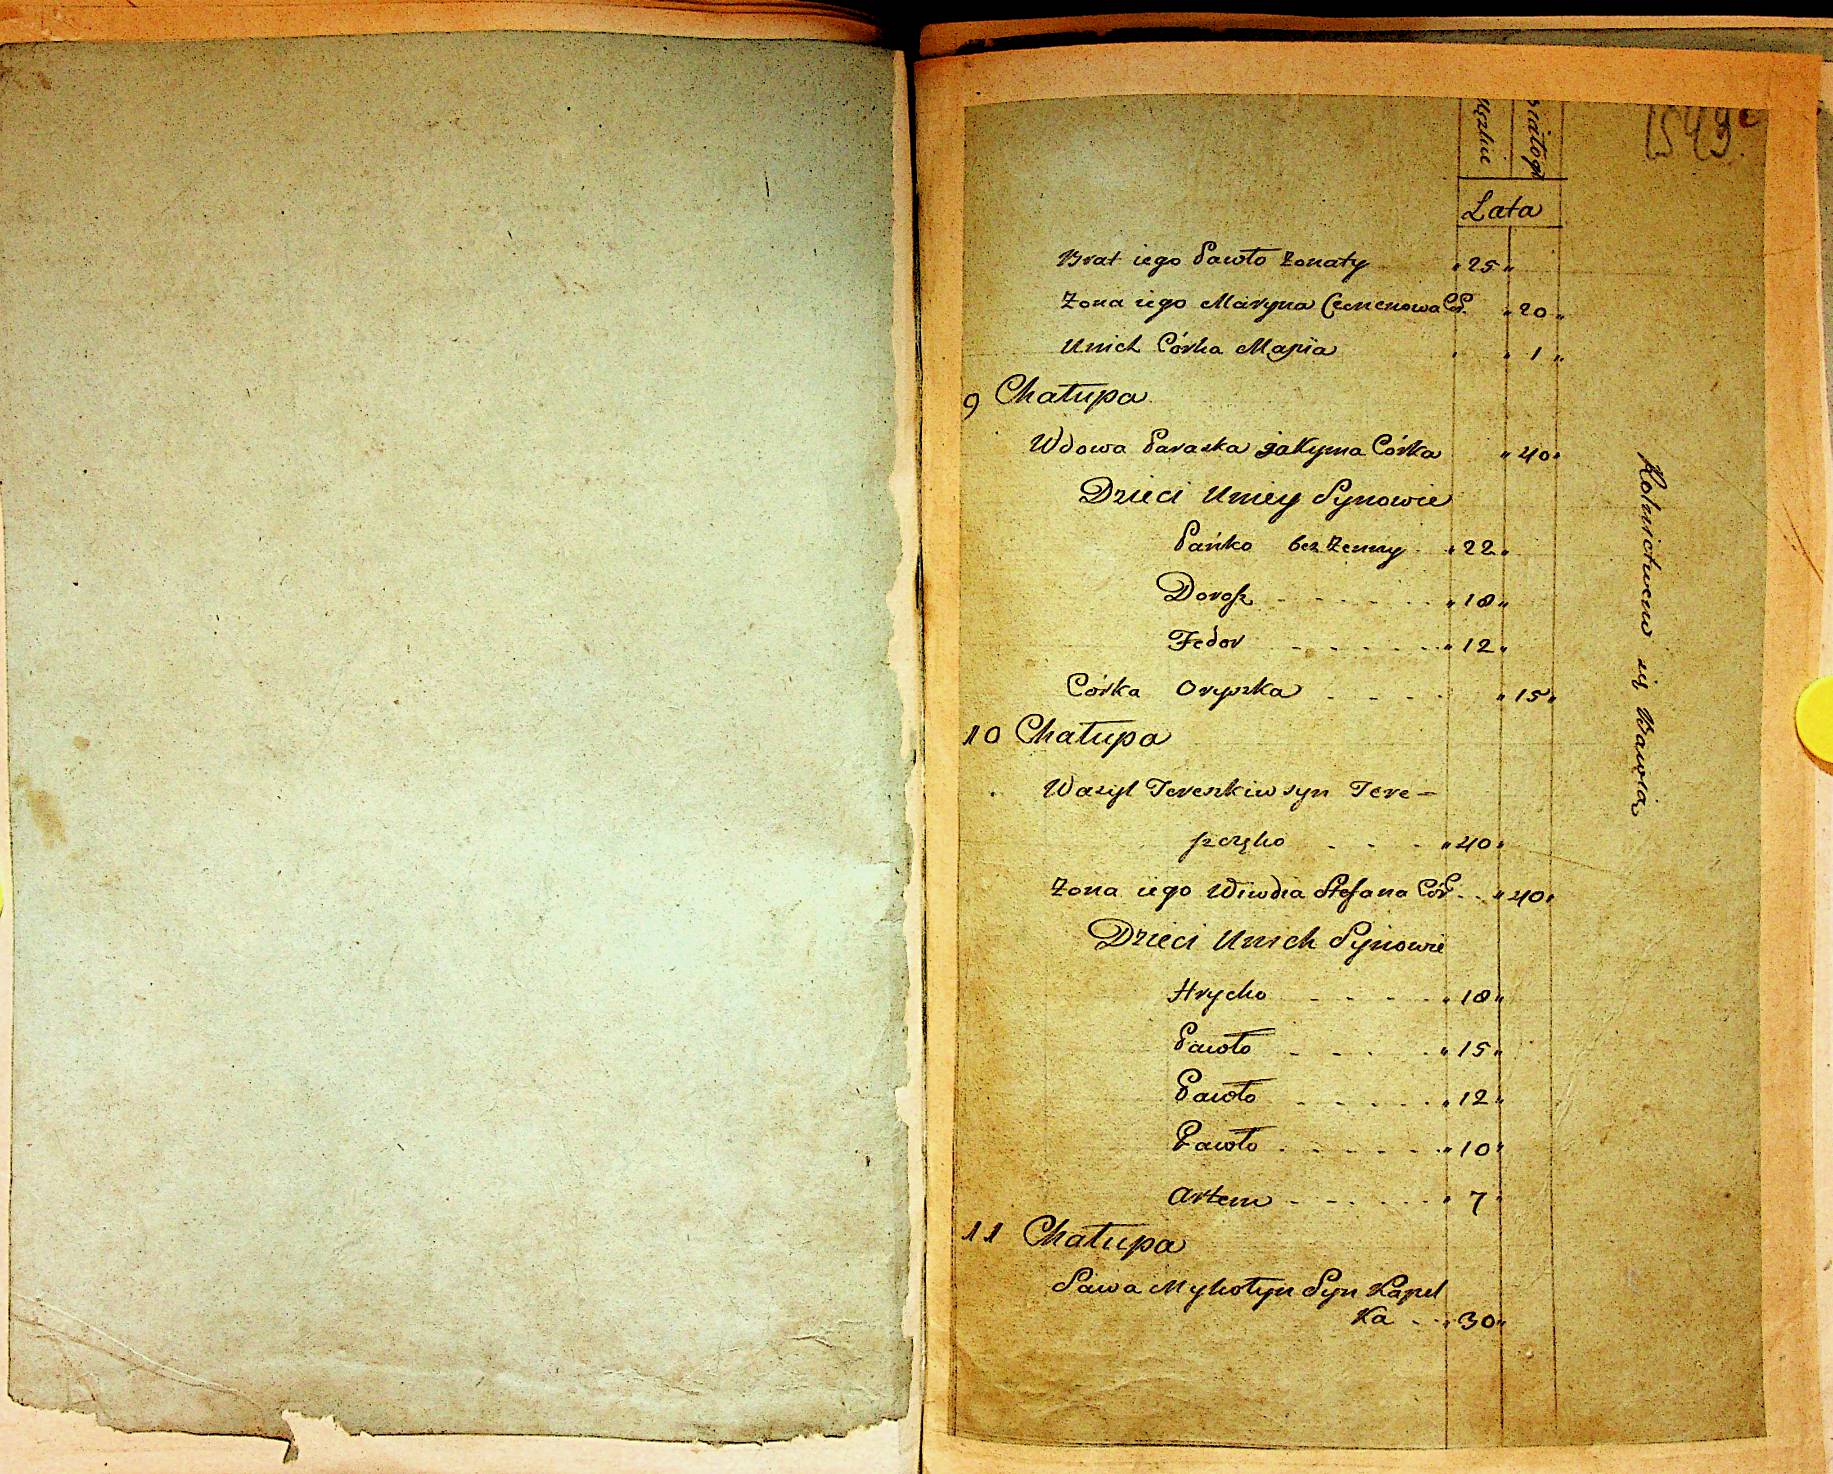 1543
Lata
Brat iego Pawło Żonaty „25„
Żona iego Maryna Cemenowa Cór. „20„
Unich Córka Maryia „1„
9 Chałupa
Wdowa Paraska Jakyma Córka „40„
Dzieci Uniey Synowie
Pańko bezżenny „22„
Dorosz - - - - - „18„
Fedor - - - - - „12„
Córka Oryszka - - - „15„
10 Chałupa
Wasyl Tereszkiw syn Tere-
szczęko - - - „40„
Żona iego Wiwdia Stefana Cór. - „40„
Dzieci Unich Synowie
Hrycko - - - - „18„
Pawło - - - - „15„
Pawło - - - - - „12„
Pawło - - - - - „10„
Artem - - - - - „7„
11 Chałupa
Sawa Mykołyn Syn Kapel
ka - - „30„
Rolnictwem się Bawią